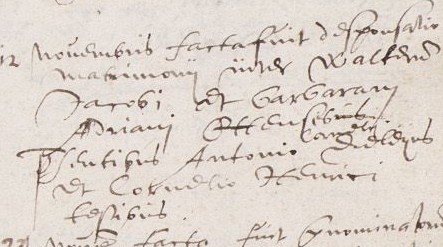 12 novembris facta fuit desponsatio
matrimonij inter walterum
Jacobi et barbaram
Adriani
testibus Antonio
et Cornelio Henrici
testibus
facta fuit